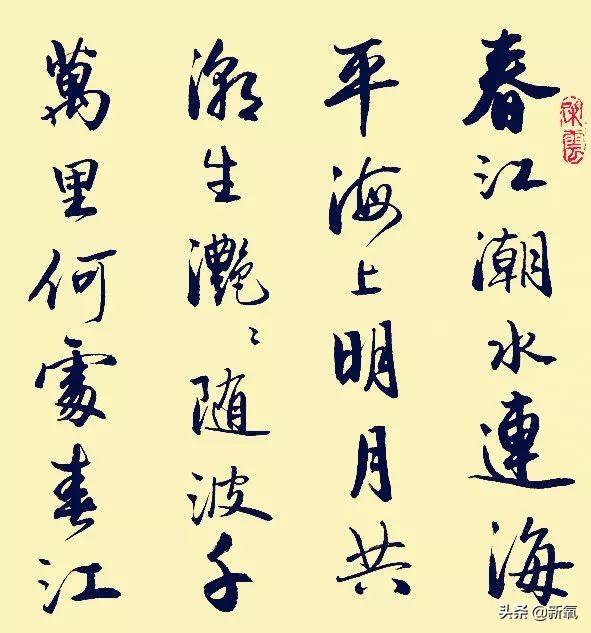 春江潮水連海
平海上明月共
潮生灔〻随波千
萬里何處春江
头条 @新氧